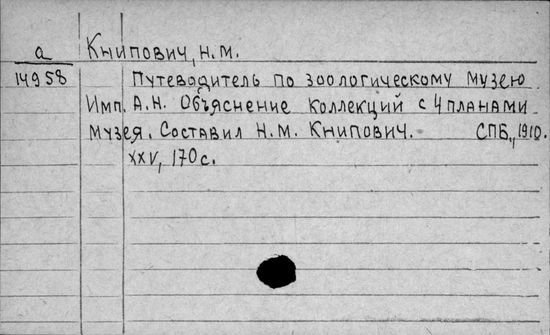 а Книпович, Н.М.
14958 Путеводитель по зоологическому музею
Имп. А.Н. Объяснение коллекций с 4 планами
музея. Составил Н.М. Книпович. СПБ., 1910.
XXV, 170 с.